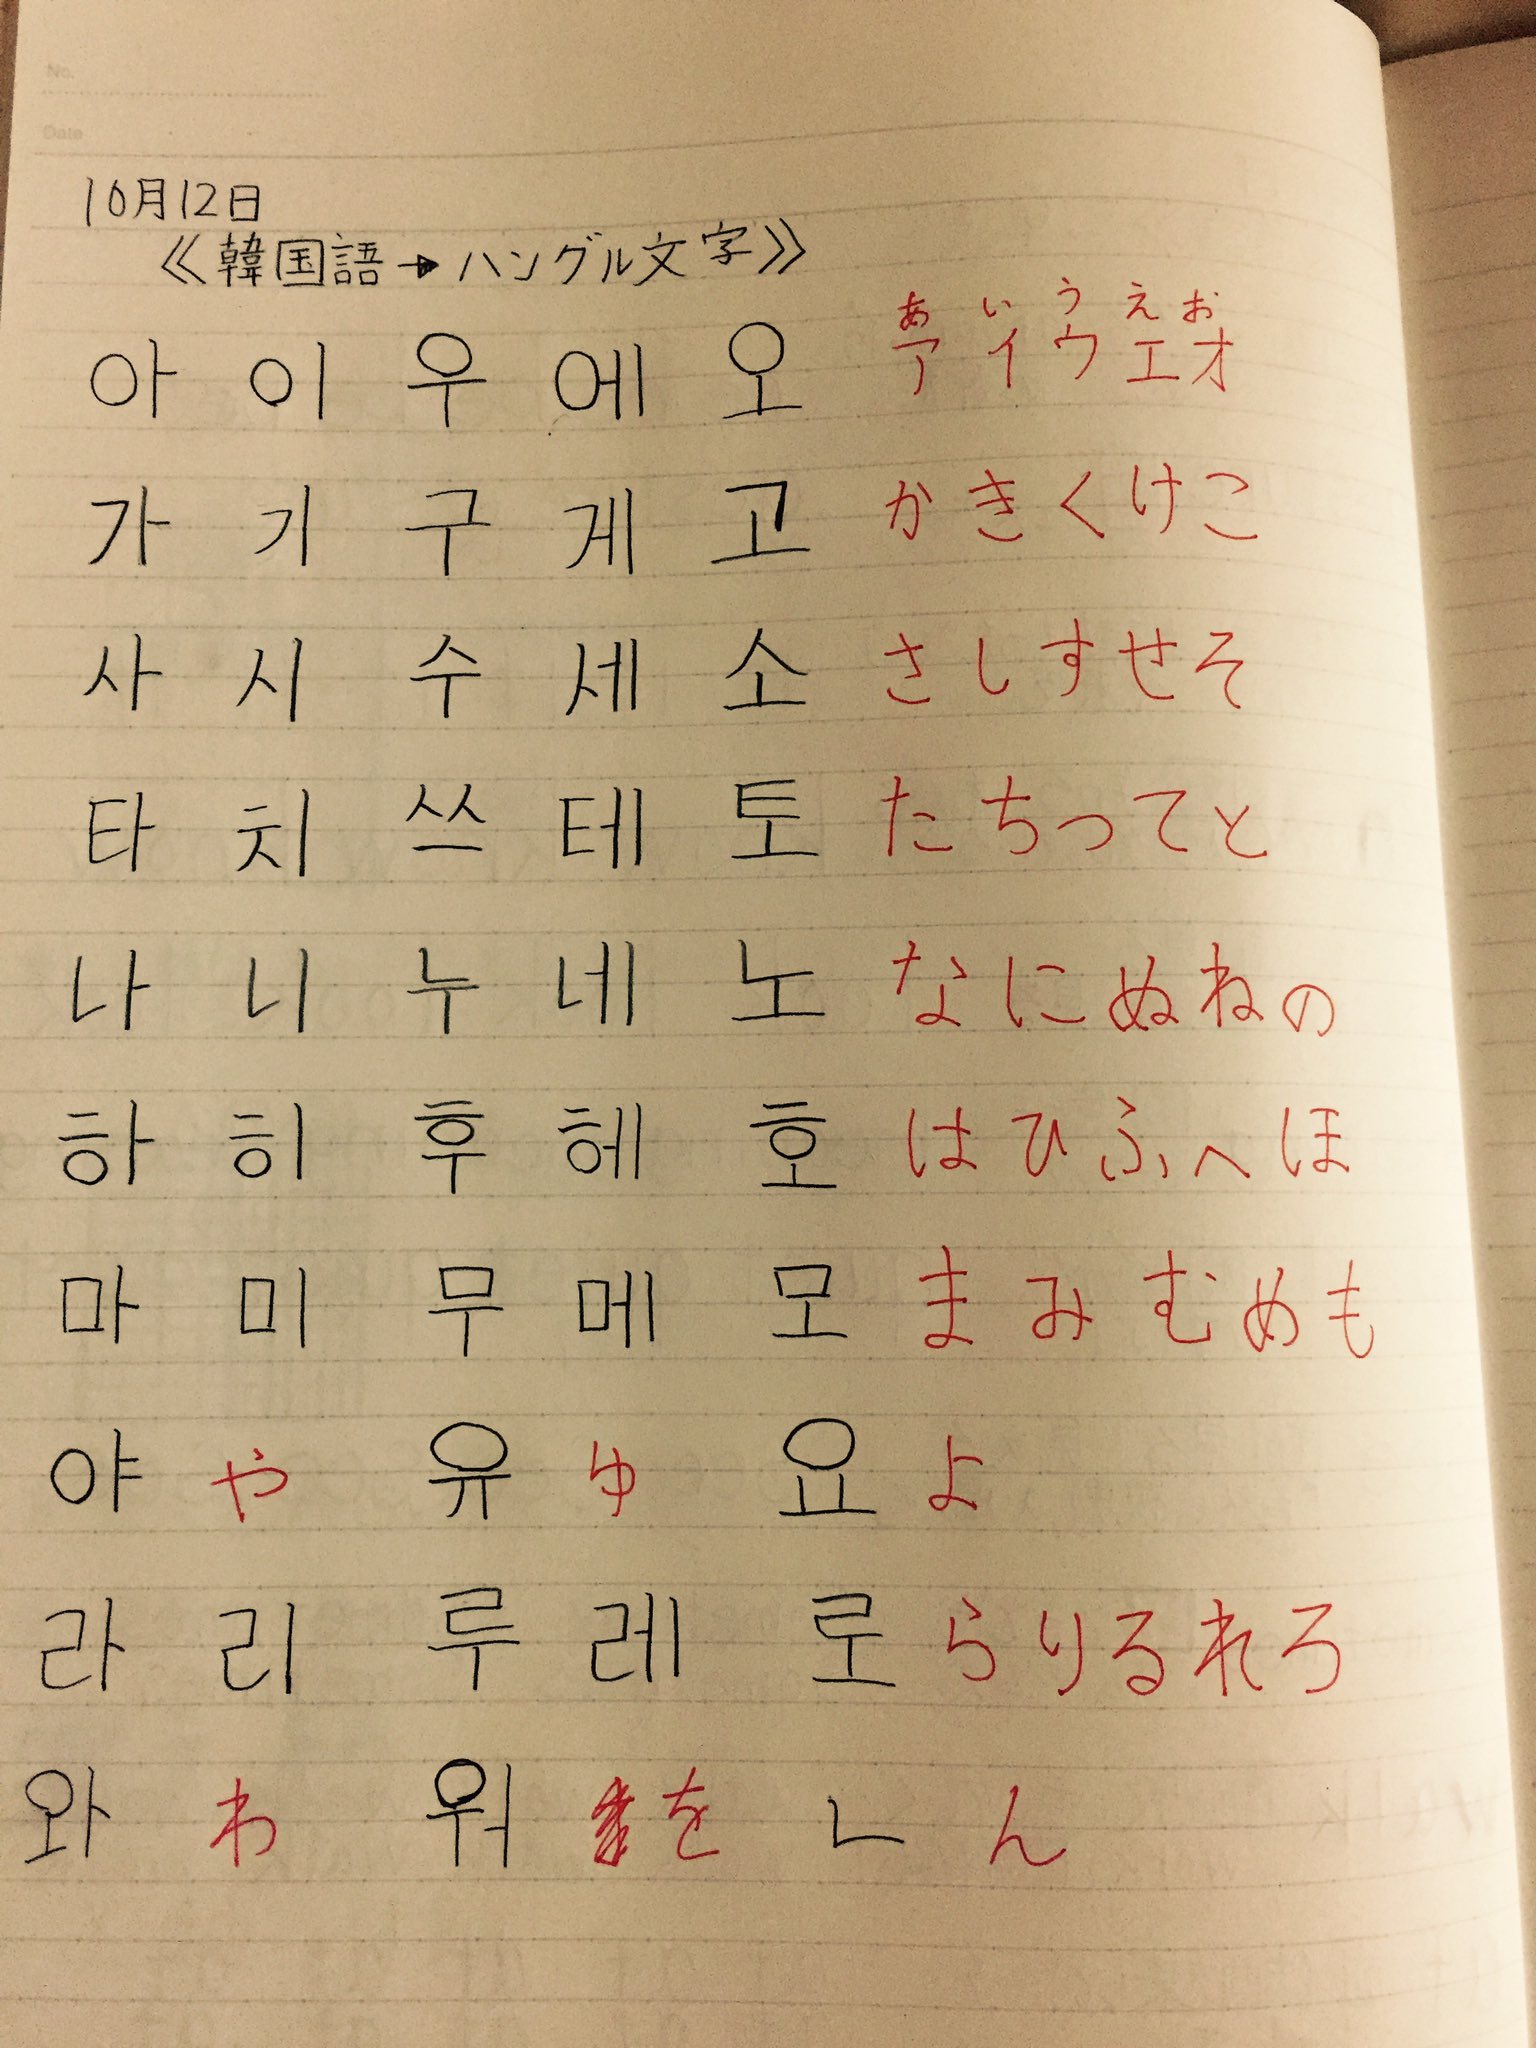 No.
Date
10月12日
《韓国語→ハングル文字》
あいうえお
아 이 우 에 오 アイウエオ
가 기 구 게 고 かきくけこ
사 시 수 세 소 さしすせそ
타 치 쓰 테 토 たちつてと
나 니 누 네 노 なにぬねの
하 히 후 헤 호 はひふへほ
마 미 무 메 모 まみむめも
야 や 유 ゆ 요 よ
라 리 루 레 로 らりるれろ
와 わ 워 を ㄴ ん